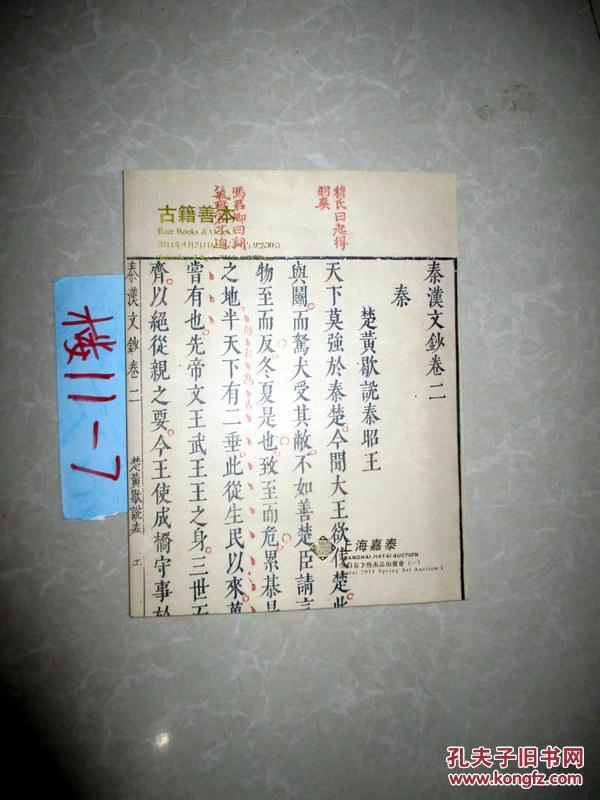 古籍善本
Rare Books &
穆氏曰起得
明爽
馮君卿曰詞
秦漢文鈔卷二
秦
楚黃歇說秦昭王
天下莫強於秦楚今聞大王欲伐楚此
與鬭而駑犬受其敝不如善楚臣請言
物至而反冬夏是也致至而危累棊是
之地半天下有二垂此從生民以來萬
嘗有也先帝文王武王王之身三世不
齊以絕從親之要今王使成橋守事於
秦漢文鈔卷二
楚黃歇說秦
上海嘉泰
SHANGHAI JIATAI AUCTION
2011 Spring Art Auction
楼11-7
孔夫子旧书网
www.kongfz.com